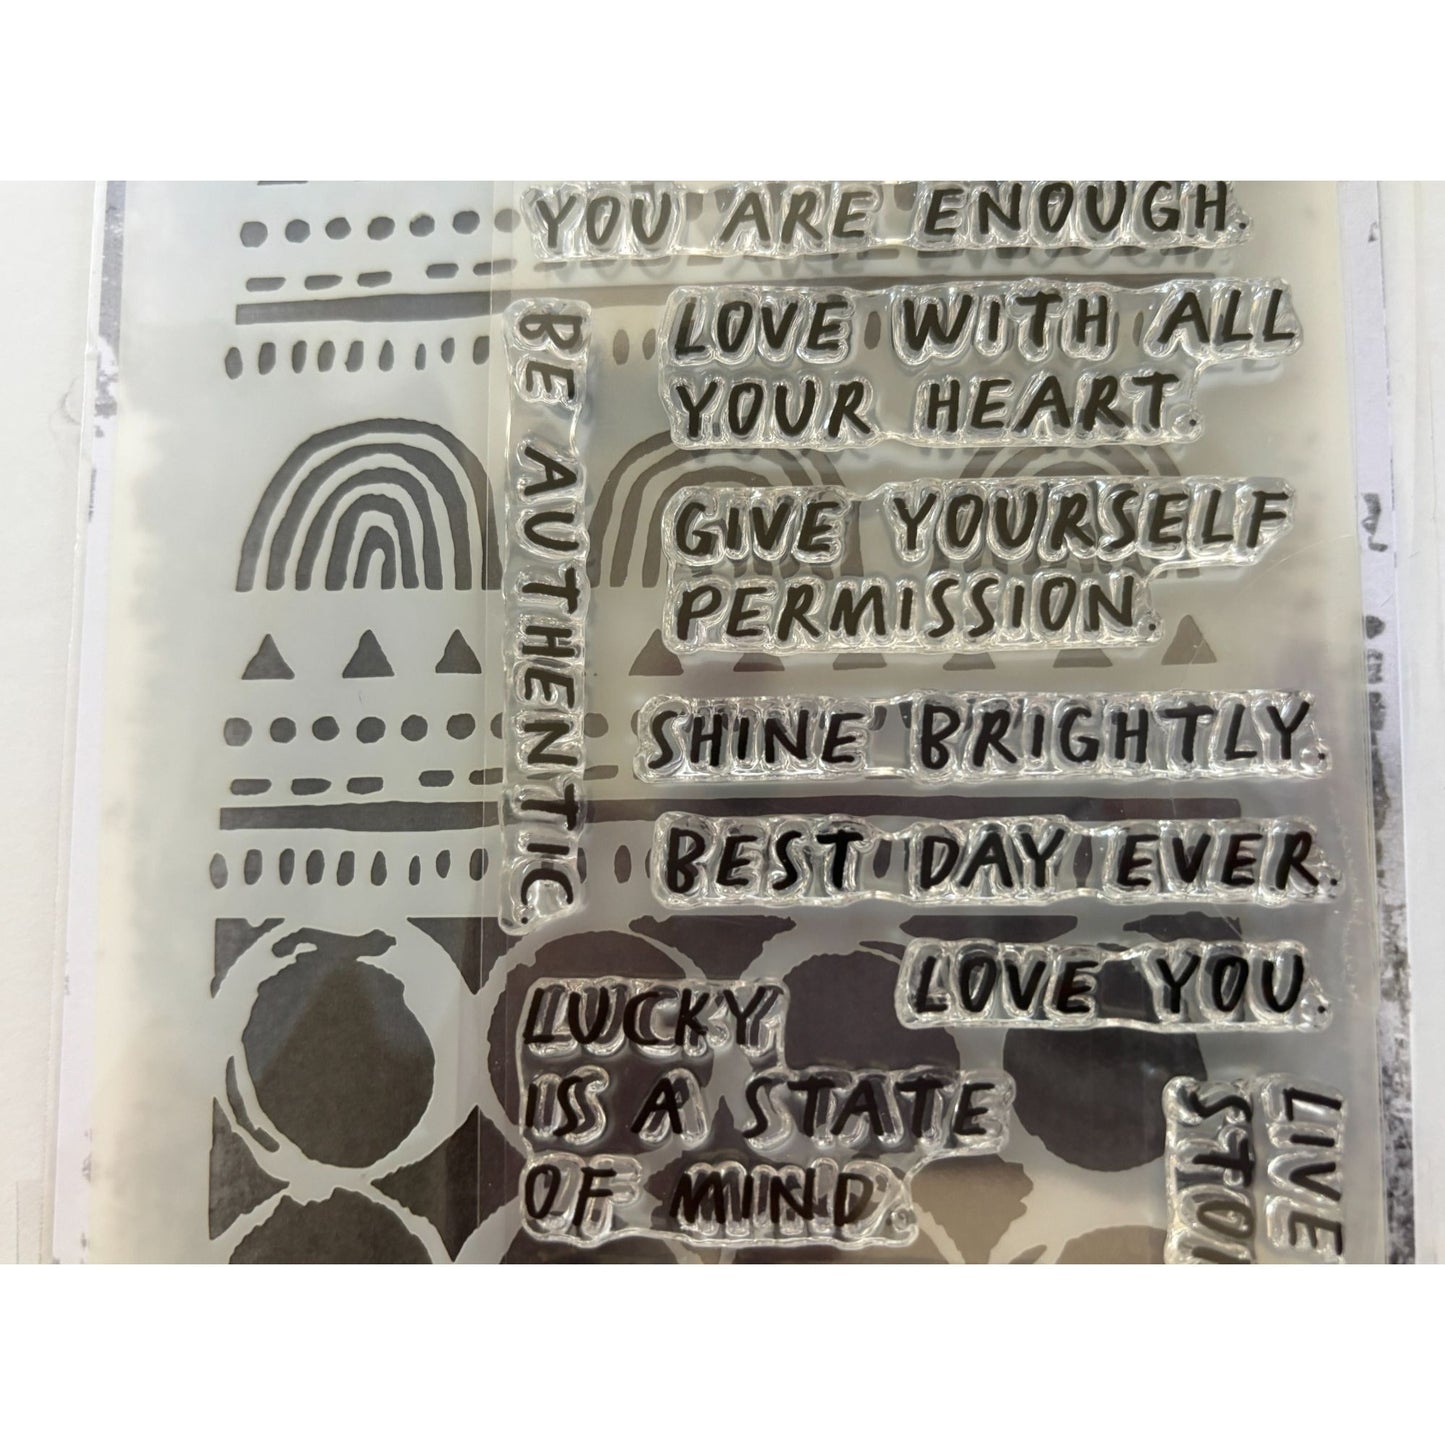 YOU ARE ENOUGH.
BE AUTHENTIC.
LOVE WITH ALL
YOUR HEART.
GIVE YOURSELF
PERMISSION.
SHINE BRIGHTLY.
BEST DAY EVER.
LOVE YOU.
LUCKY
IS A STATE
OF MIND.
LIVE